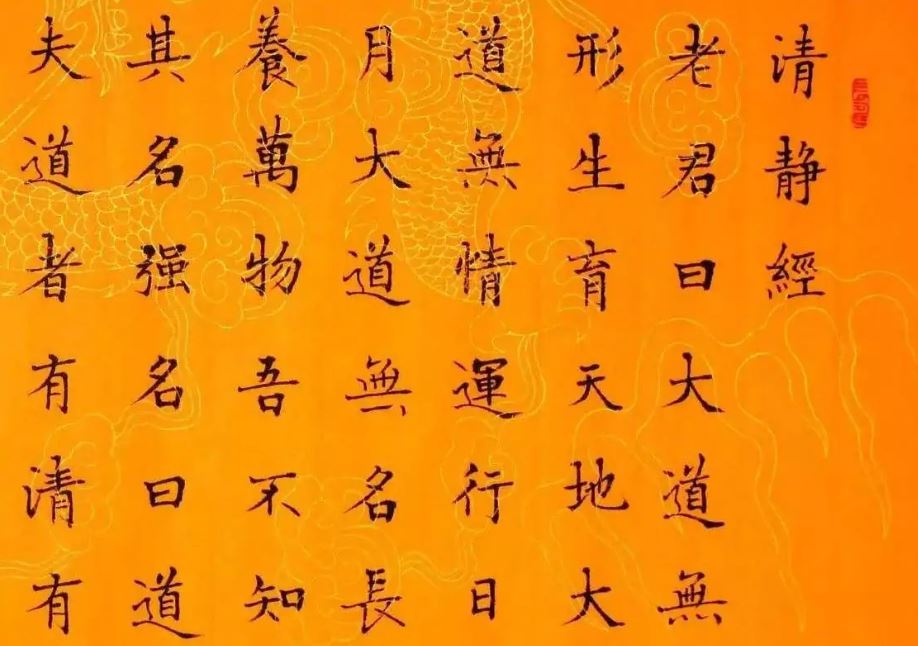 清静經
老君曰大道無
形生育天地大
道無情運行日
月大道無名長
養萬物吾不知
其名强名曰道
夫道者有清有